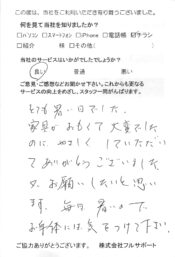 この度は、当社をご利用いただき有り難うございました。
何を見て当社を知りましたか？
□パソコン □スマートフォン □iPhone □電話帳 ☑チラシ
□紹介 様 □その他( )
当社のサービスはいかがでしたでしょうか？
良い 普通 悪い
ご意見・ご感想などお聞かせ下さい。これからも更なる
サービスの向上をめざし、スタッフ一同がんばります。
とても暑い日でした。
家具がおもくて大変でした
のに やさしく していただい
て ありがとう ございました。
又、お願いしたいと思い
ます。毎日 暑いので、
お身体には気をつけて下さい。
ご協力ありがとうございます。 株式会社フルサポート